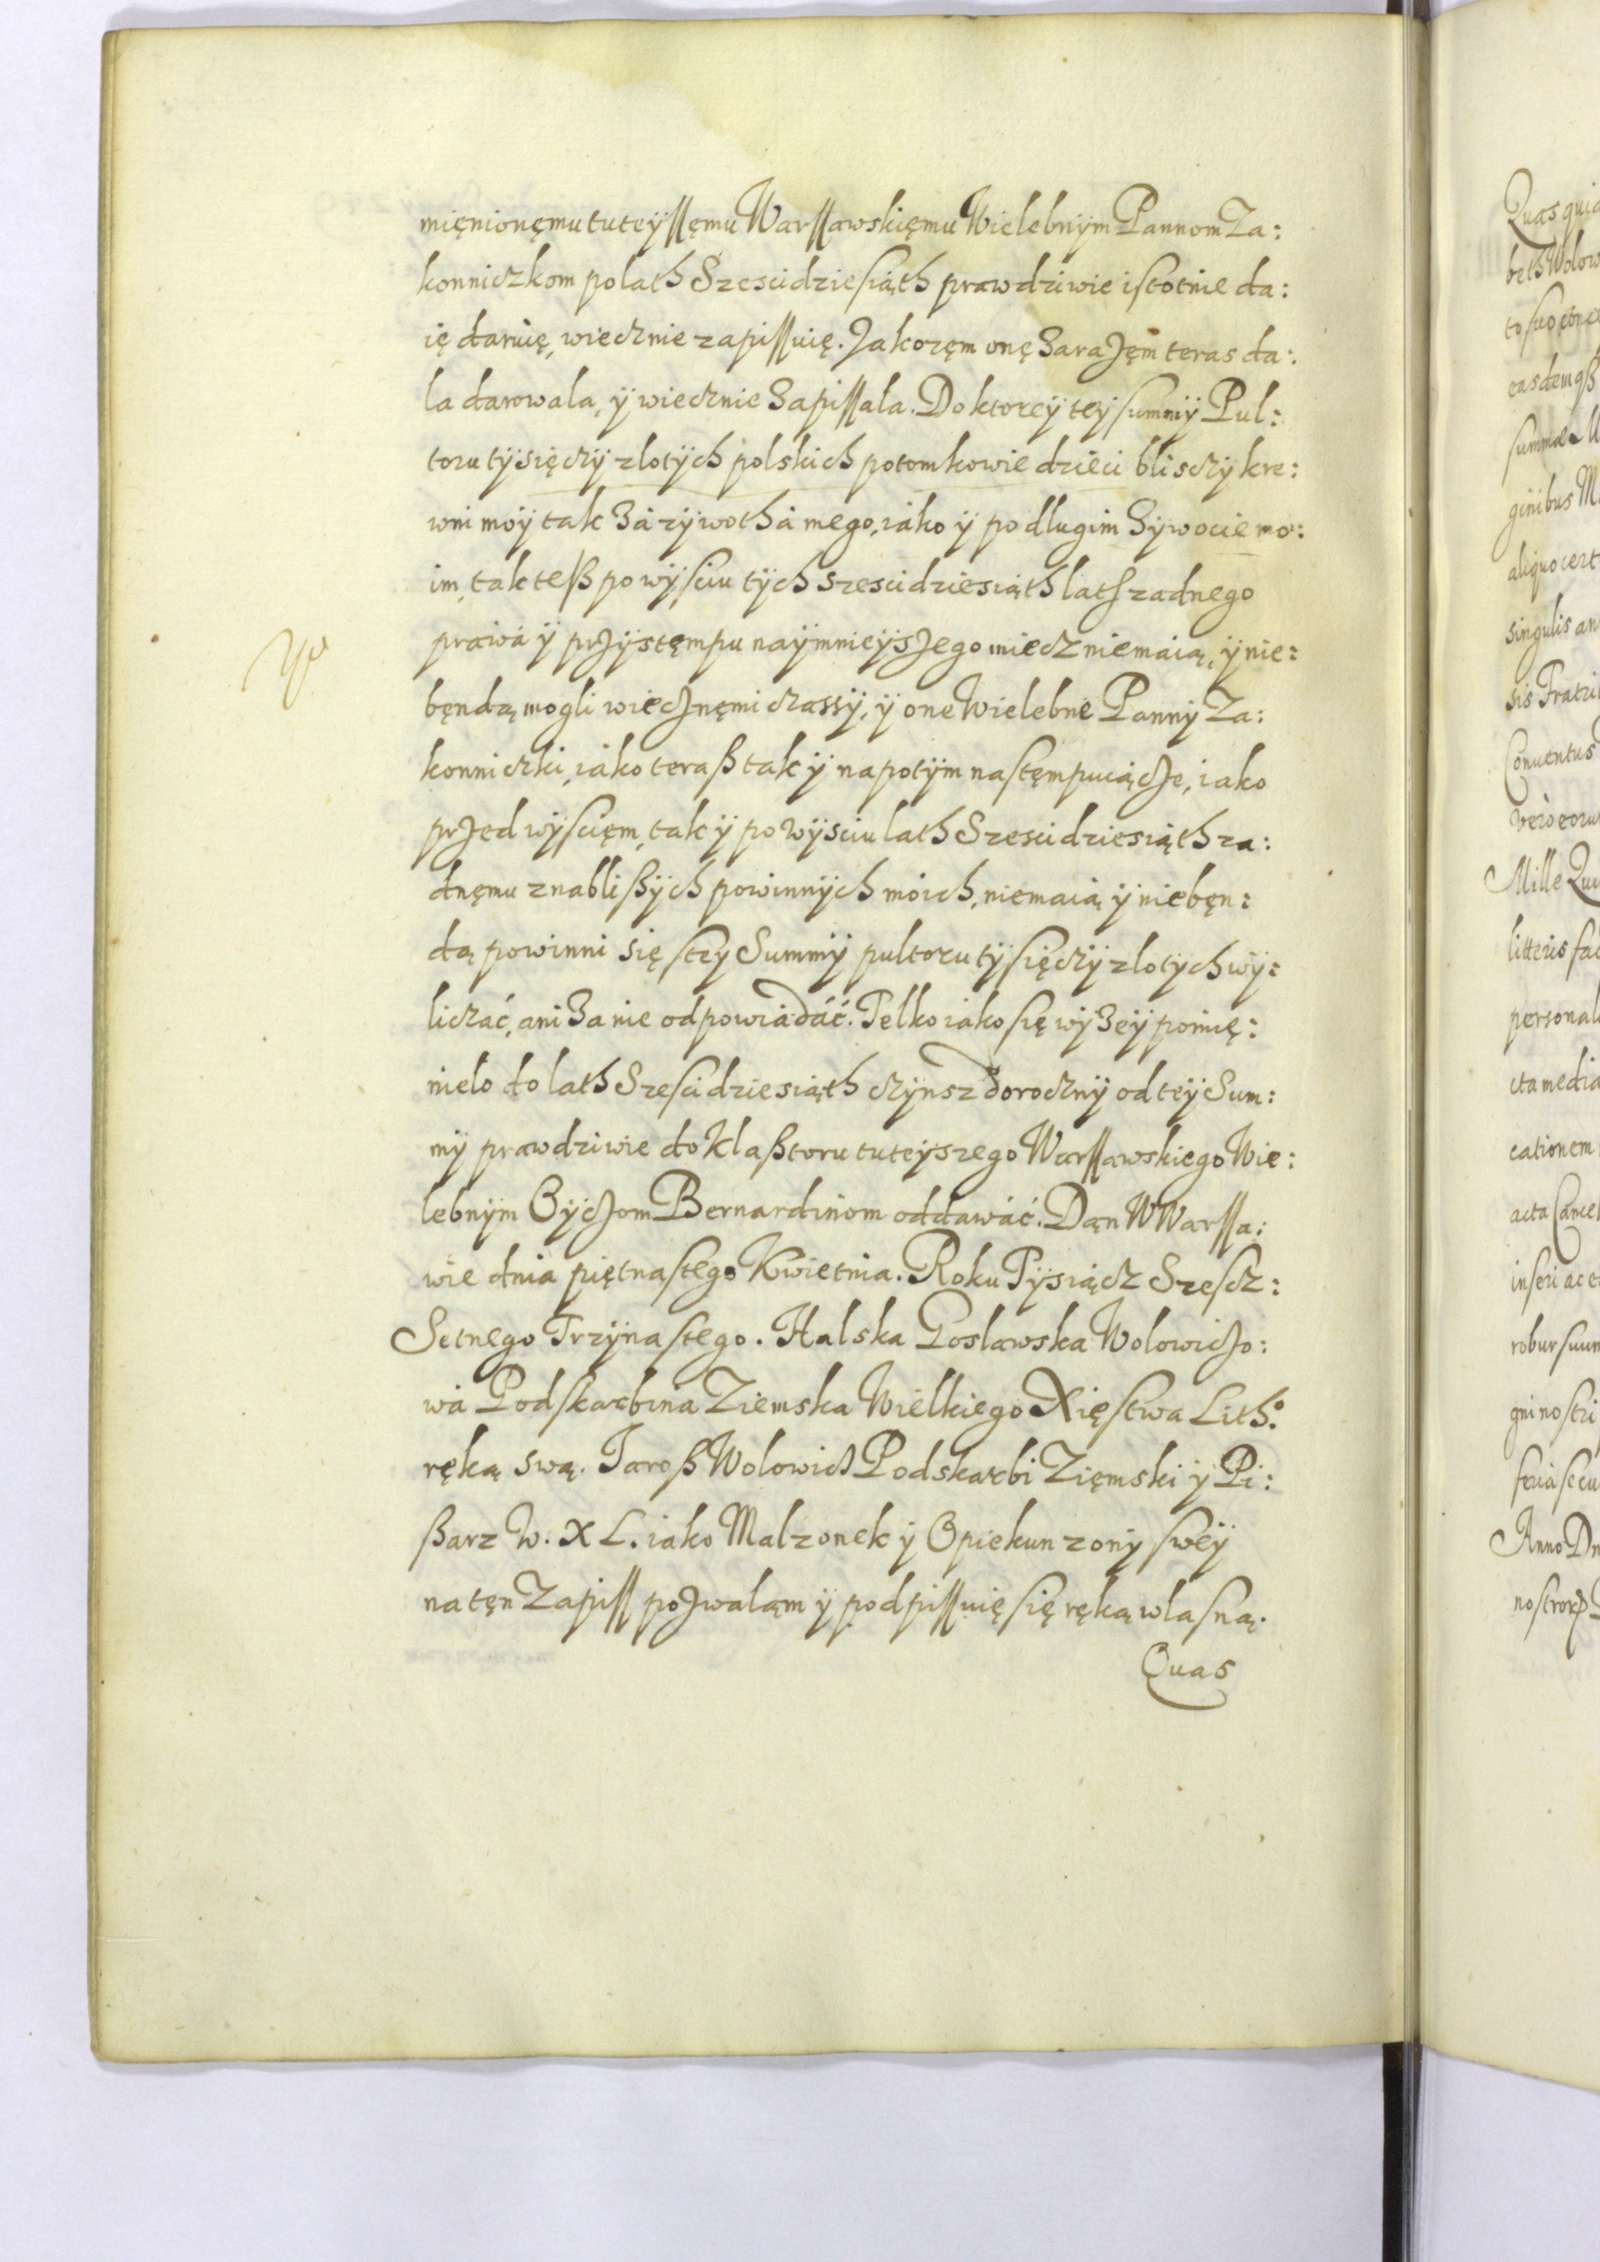 mięnionęmu tuteÿssęmu Warssawskięmu Wielebnÿm Pannom Za:
konniczkom po lath Szescidziesiąth prawdziwie istotnie da:
ię daruię, wiecznie zapissuię. Jakozęm onę Zarazęm teras da:
la darowala, ÿ wiecznie Zapissala. Do ktoreÿ teÿ summÿ Pul:
toru tÿsięczÿ zlotÿch polskich potomkowie dzieci blisczÿ kre:
wni moÿ tak Zá zÿwothá mego, iáko ÿ po dlugim Zÿwocie mo:
im, tak teß po wÿsciu tÿch szescidziesiąth lath zadnego
prawá ÿ przÿstęmpu naÿmnieÿszego miecz niemaią, ÿ nie:
bęndą mogli wiecznęmi czassÿ, ÿ one Wielebne Pannÿ Za:
konniczki, iáko teraß tak ÿ napotÿm nastęmpuiącze, iako
przed wÿscięm, tak ÿ po wÿsciu lath Szescidziesiąth za:
dnęmu z nablißÿch powinnÿch moich, niemaią ÿ niebęn:
dą powinni się steÿ Summÿ pultoru tÿsięczÿ zlotÿch wÿ:
liczáć, ani Za nie odpowiádáć. Telko iáko się wÿZeÿ pomię:
nielo do lath Szescidziesiąth czÿnsz dorocznÿ od teÿ Sum:
mÿ prawdziwie do Klaßtoru tuteÿszego Warssawskiego Wie:
lebnÿm Oÿczom Bernardinom oddawáć. Dąn W Warssa:
wie dnia piętnastego Kwietnia. Roku Tÿsiącz Szescz:
Setnego Trzÿnastego. Halska Goslawska Wolowiczo:
wá Podskarbina Ziemska Wielkiego Xięstwa Lith:
ręką swą. Jaroß Wolowicz Podskarbi Zięmski ÿ Pi:
ßarz W. X L. iako Malzonek ÿ Opiekun zonÿ sweÿ
na tęn Zapiss pozwaląm ÿ podpissuię się ręką wlasną.
Quas
Quas quid
beth Wolow
summæ M
ginibus M
aliquo cert
singulis an
sis Fratri
Conuentus
Mille Qu
litteris fac
personal
cta media
cationem
acta Cancel
robur suum
gni nostri
Anno Dn